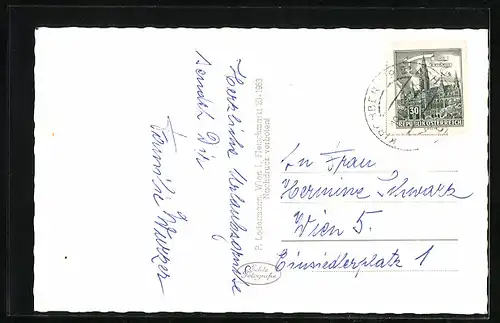 Herzliche Urlaubsgrüße
sendet Dir
Familie Wurzer
P. Ledermann, Wien I, Fleischmarkt 20 - 1963
Nachdruck verboten!
Echte
Fotografie
30
REPUBLIK ÖSTERREICH
An Frau
Hermine Schwarz
Wien 5.
Einsiedlerplatz 1